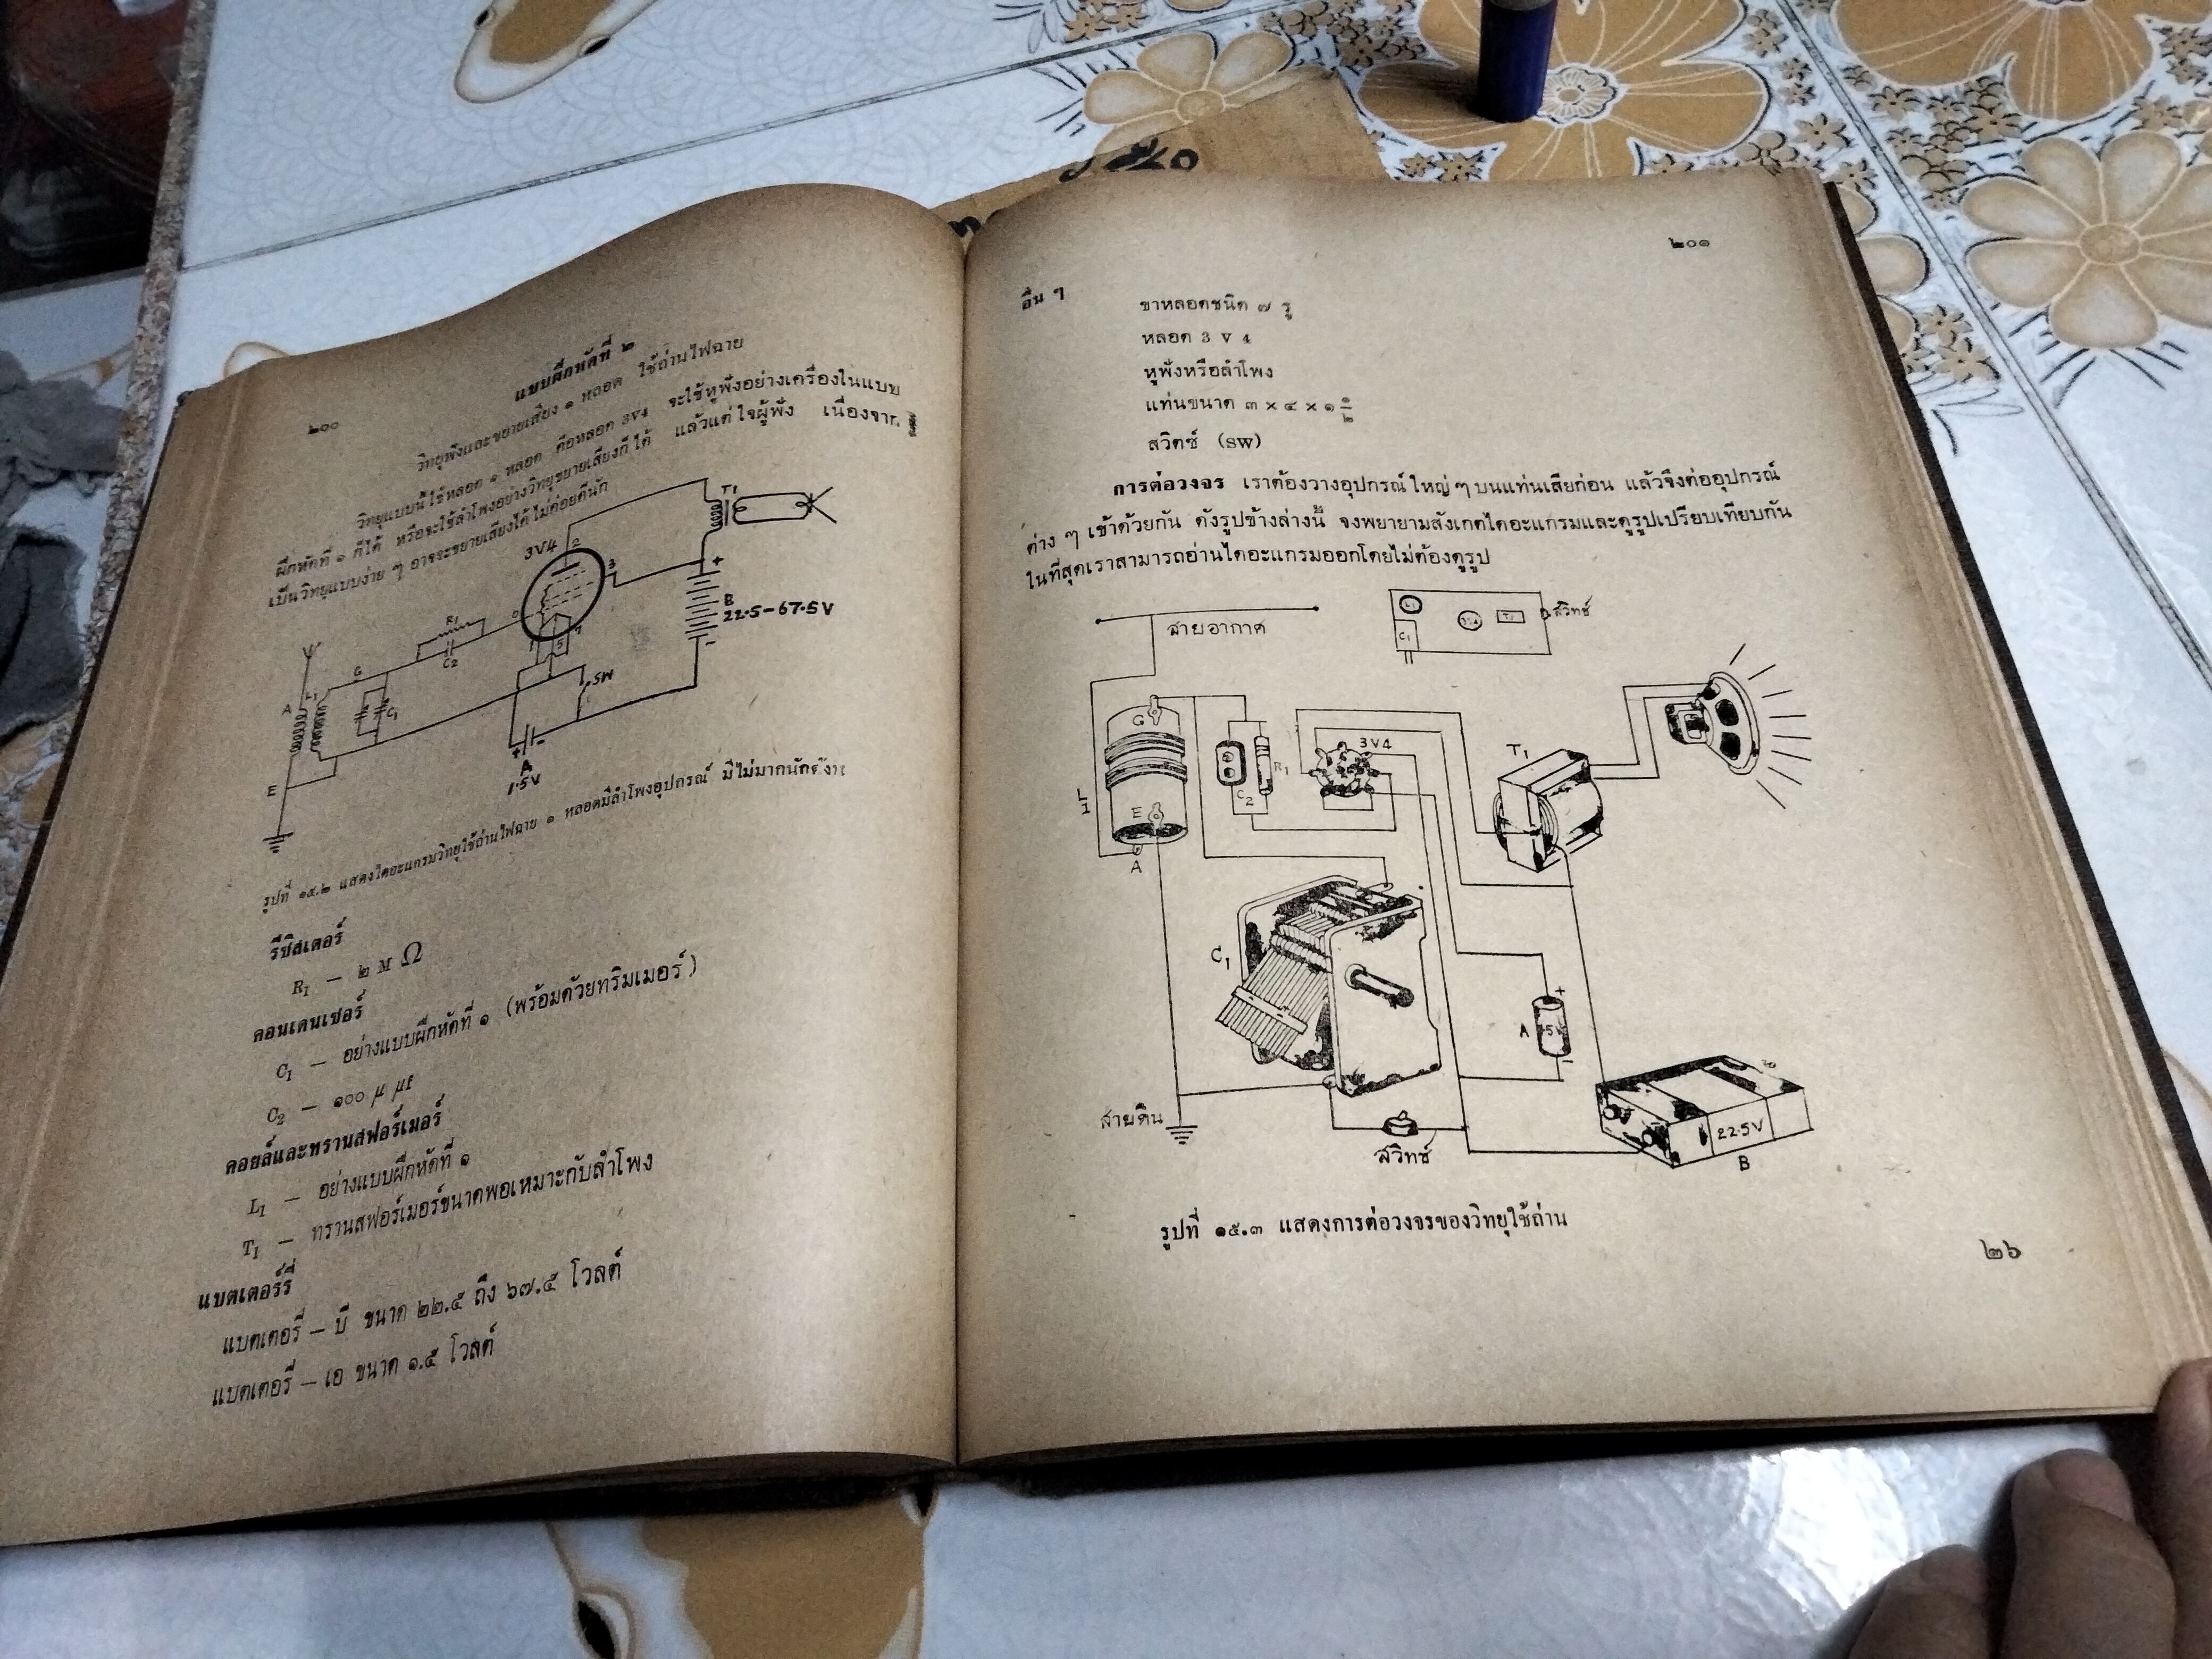 ๒๐๐
แบบฝึกหัดที่ ๒
วิทยุฟังและขยายเสียง ๑ หลอด ใช้ถ่านไฟฉาย
วิทยุแบบนี้ใช้หลอด ๑ หลอด คือหลอด 3V4 จะใช้หูฟังอย่างเครื่องในแบบ
ฝึกหัดที่ ๑ ก็ได้ หรือจะใช้ลำโพงอย่างวิทยุขยายเสียงก็ได้ แล้วแต่ใจผู้ฟัง เนื่องจาก
เป็นวิทยุแบบง่าย ๆ อาจจะขยายเสียงได้ไม่ค่อยดีนัก
T1
3V4
2
3
B
22.5-67.5V
+
-
R1
C2
G
A
L1
C1
5
7
SW
E
+ -
A
1.5V
รูปที่ ๑๕.๒ แสดงไดอะแกรมวิทยุใช้ถ่านไฟฉาย ๑ หลอดมีลำโพงอุปกรณ์ มีไม่มากนักดังนี้
รีซิสเตอร์
R1 — ๒ M Ω
คอนเดนเซอร์
C1 — อย่างแบบฝึกหัดที่ ๑ (พร้อมด้วยทริมเมอร์)
C2 — ๑๐๐ μ μf
คอยล์และทรานสฟอร์เมอร์
L1 — อย่างแบบฝึกหัดที่ ๑
T1 — ทรานสฟอร์เมอร์ขนาดพอเหมาะกับลำโพง
แบตเตอร์รี่
แบตเตอรี่ — บี ขนาด ๒๒.๕ ถึง ๖๗.๕ โวลต์
แบตเตอรี่ — เอ ขนาด ๑.๕ โวลต์
๒๐๑
อื่น ๆ
ขาหลอดชนิด ๗ รู
หลอด 3 V 4
หูฟังหรือลำโพง
แท่นขนาด ๓ × ๔ × ๑ ๑/๒
สวิตซ์ (SW)
การต่อวงจร เราต้องวางอุปกรณ์ใหญ่ ๆ บนแท่นเสียก่อน แล้วจึงต่ออุปกรณ์
ต่าง ๆ เข้าด้วยกัน ดังรูปข้างล่างนี้ จงพยายามสังเกตไดอะแกรมและดูรูปเปรียบเทียบกัน
ในที่สุดเราสามารถอ่านไดอะแกรมออกโดยไม่ต้องดูรูป
สายอากาศ
L1
3V4
T1
C1
สวิทช์
G
E
A
L1
C2
R1
3V4
T1
C1
+
A
-
สายดิน
สวิทซ์
22.5V
B
รูปที่ ๑๕.๓ แสดงการต่อวงจรของวิทยุใช้ถ่าน
๒๖